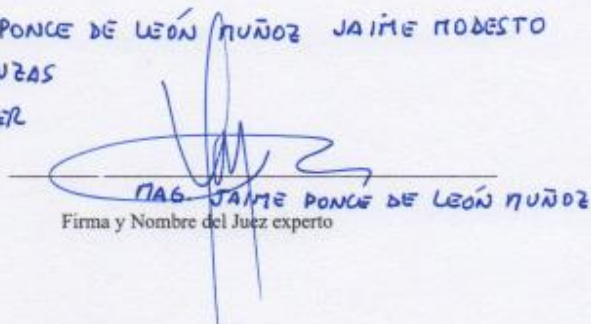 PONCE DE LEÓN MUÑOZ JAIME MODESTO
NZAS
ER
MAG. JAIME PONCE DE LEÓN MUÑOZ
Firma y Nombre del Juez experto